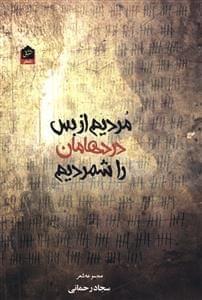 مُردیم از بس
دردهامان
را شمردیم
مجموعه شعر
سجاد رحمانی